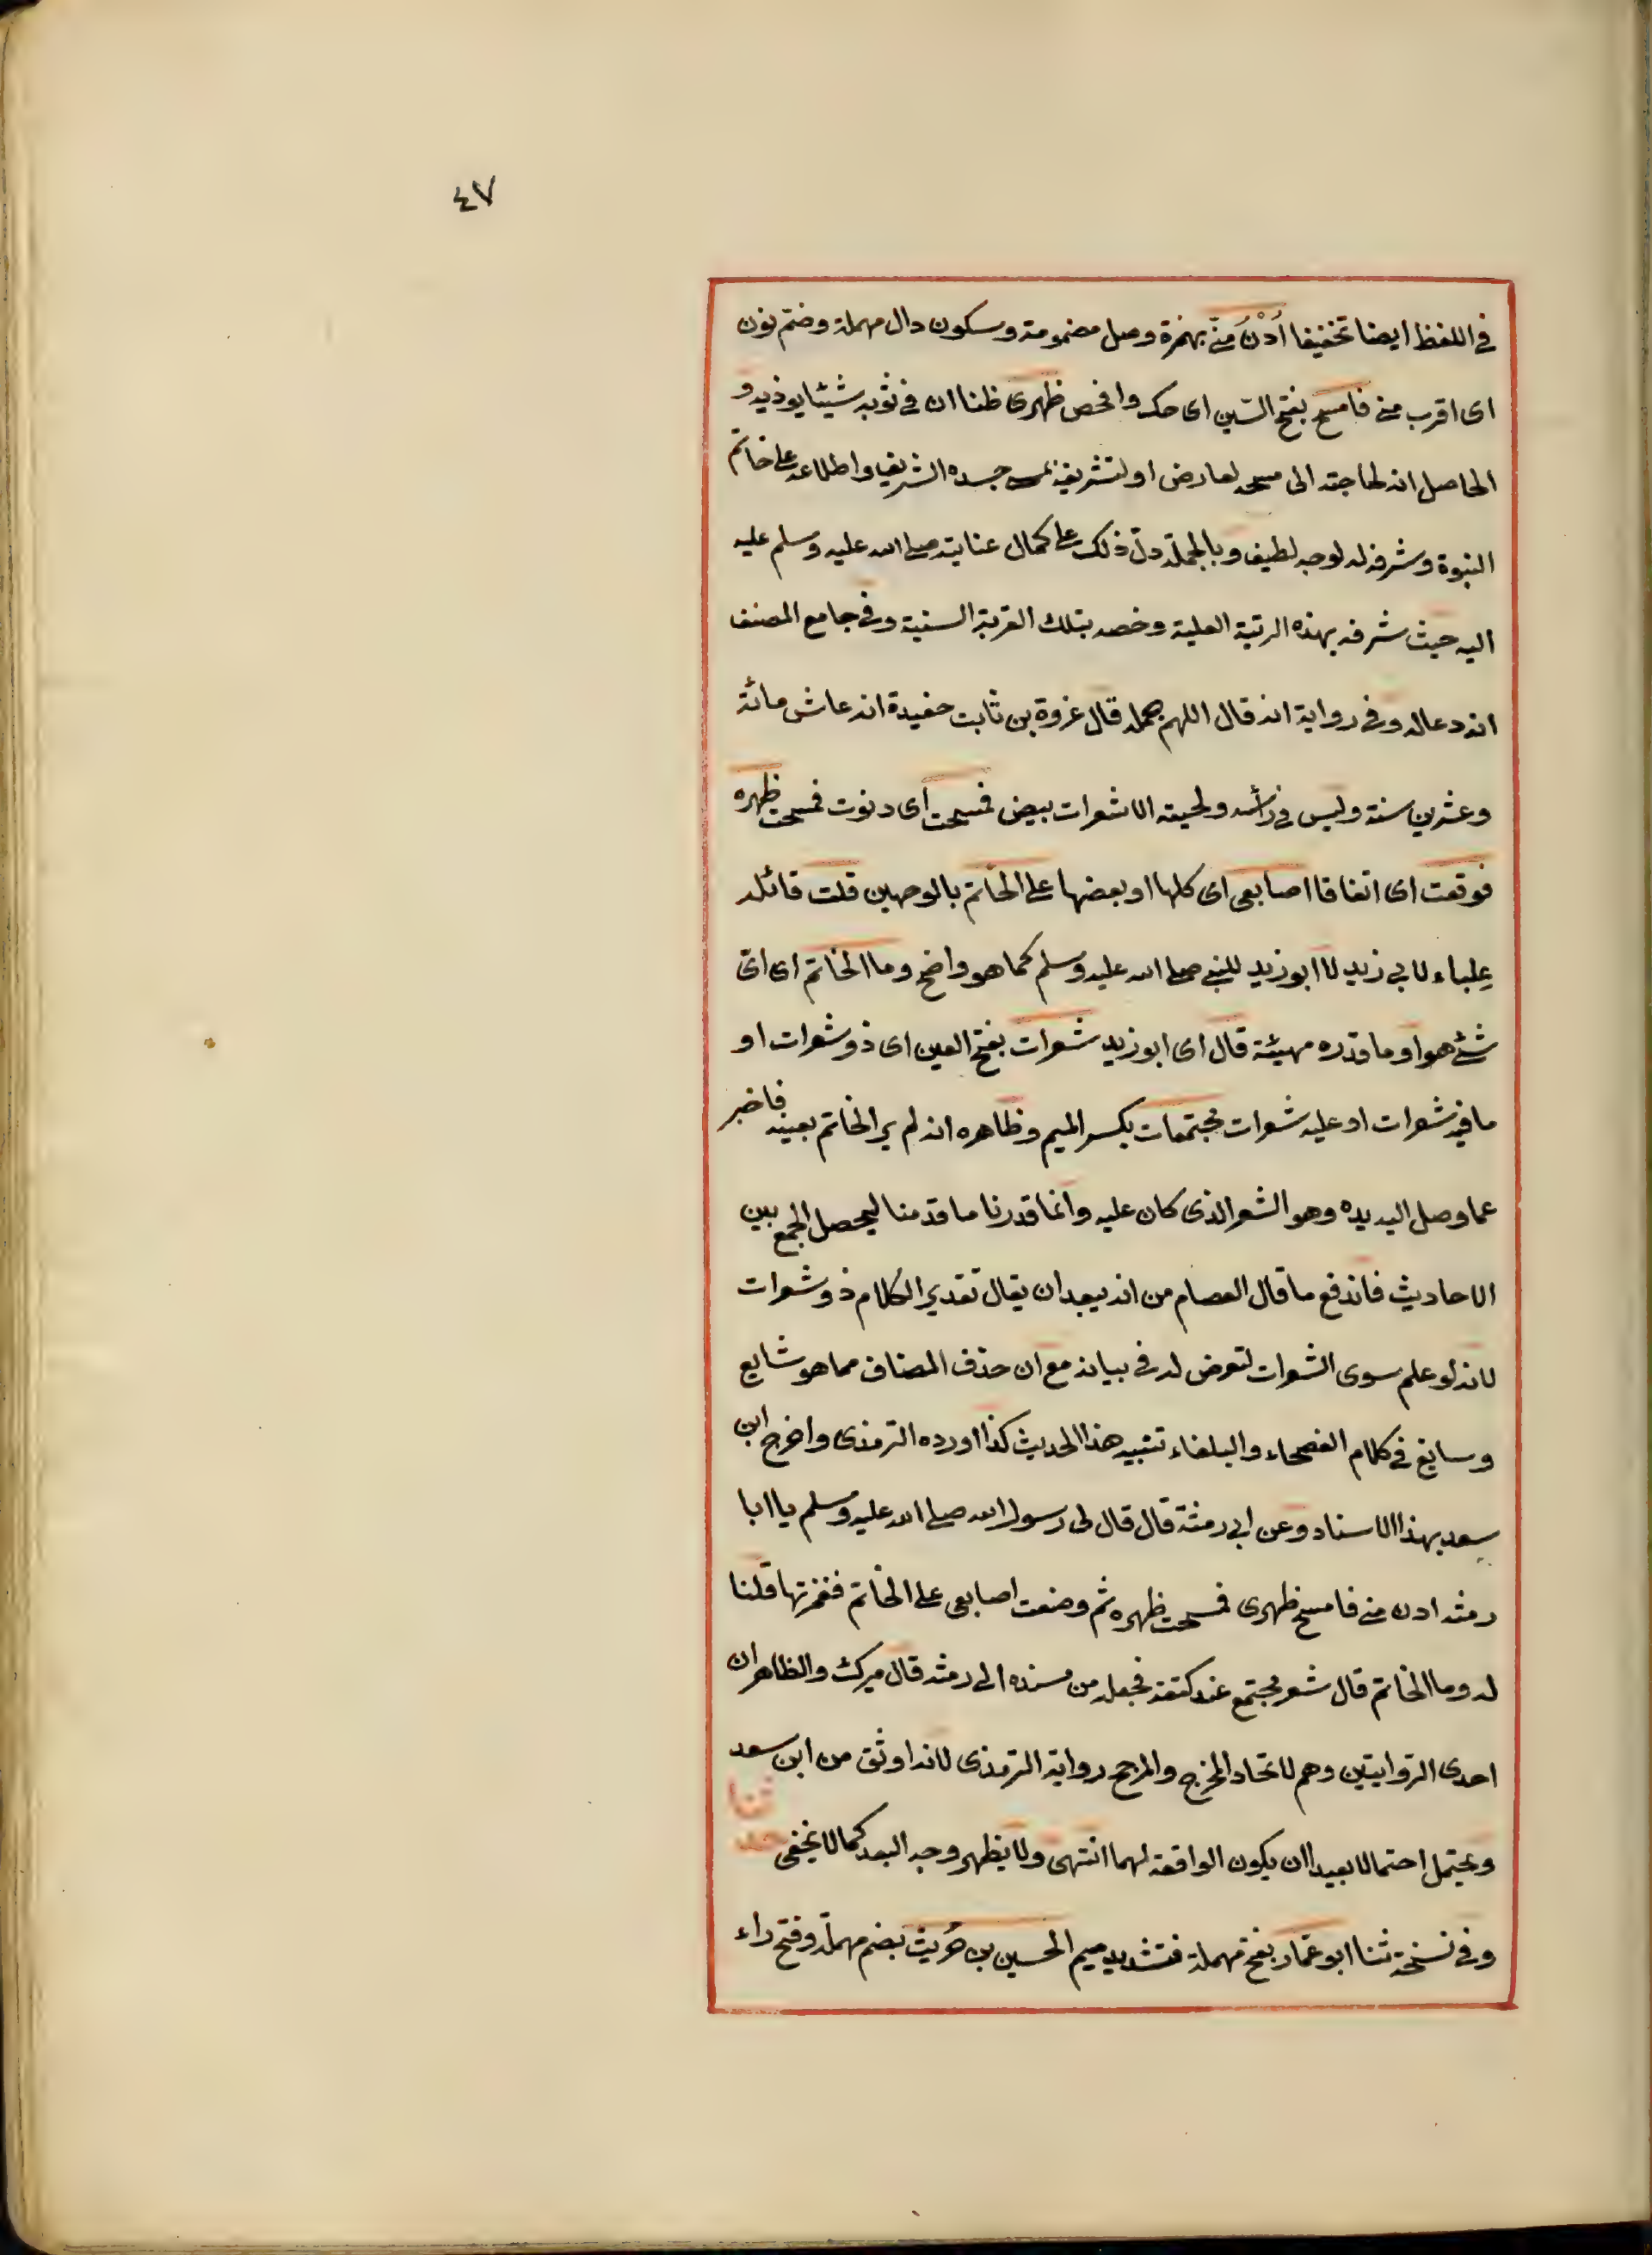 ٤٧
في اللفظ ايضا تخفيفا اُدْنُ منّي بهمزة وصل مضمومة وسكون دال مهملة وضم نون
اى اقرب مني فامسح بفتح السّين اى حك وافحص ظهرى ظنا ان في ثوبه شيئا يوذيه و
الحاصل انه لحاجته الى مسحه لعارض او لتشريفه بمس جسده الشريف واطلاعه على خاتم
النبوة وشرفه له لوجه لطيف وبالجملة دلّ ذلك على كمال عنايته صلى الله عليه وسلم عليه
اليه حيث شرفه بهذه الرتبة العلية وخصه بتلك القربة السنية وفي جامع المصنف
انه دعا له وفي رواية انه قال اللهم جمله قال غزوة بن ثابت حفيدة انه عاش مائة
وعشرين سنة وليس في رأسه ولحيته الا شعرات بيض فمسحت اى دنوت فمسحت ظهره
فوقعت اى اتفاقا اصابعى اى كلها او بعضها على الخاتم بالوجهين قلت قائله
عِلباء لابي زيد لا ابو زيد للنبي صلى الله عليه وسلم كما هو واضح وما الخاتم اى اىّ
شئ هو او ما قدره مهيئة قال اى ابو زيد شعرات بفتح العين اى ذو شعرات او
ما فيه شعرات او عليه شعرات مجتمعات بكسر الميم وظاهره انه لم ير الخاتم بعينه فاخبر
عما وصل اليه يده وهو الشعر الذى كان عليه وانما قدرنا ما قدمنا ليحصل الجمع بين
الاحاديث فاندفع ما قال العصام من انه يبعد ان يقال تقدير الكلام ذو شعرات
لانه لو علم سوى الشعرات لتعرض له في بيانه مع ان حذف المضاف مما هو شايع
وسايغ في كلام الفصحاء والبلغاء تنبيه هذا الحديث كذا اورده الترمذى واخرج ابن
سعد بهذا الاسناد وعن ابي رمثة قال قال لى رسول الله صلى الله عليه وسلم يا ابا
رمثه ادن مني فامسح ظهرى فمسحت ظهره ثم وضعت اصابعى على الخاتم فغمزتها قلنا
له وما الخاتم قال شعر مجتمع عند كتفه فجعله من مسنده الى رمثه قال ميرك والظاهر ان
احدى الرّوايتين وهم لاتحاد المخرج والمرجح رواية الترمذى لانه اوثق من ابن سعد
ويحتمل احتمالا بعيدا ان يكون الواقعة لهما انتهى ولا يظهر وجه البعد كما لا يخفى ثنا
وفي نسخة ثنا ابو عمّار بفتح مهملة فتشديد ميم الحسين بن حُريث بضم مهملة وفتح راء